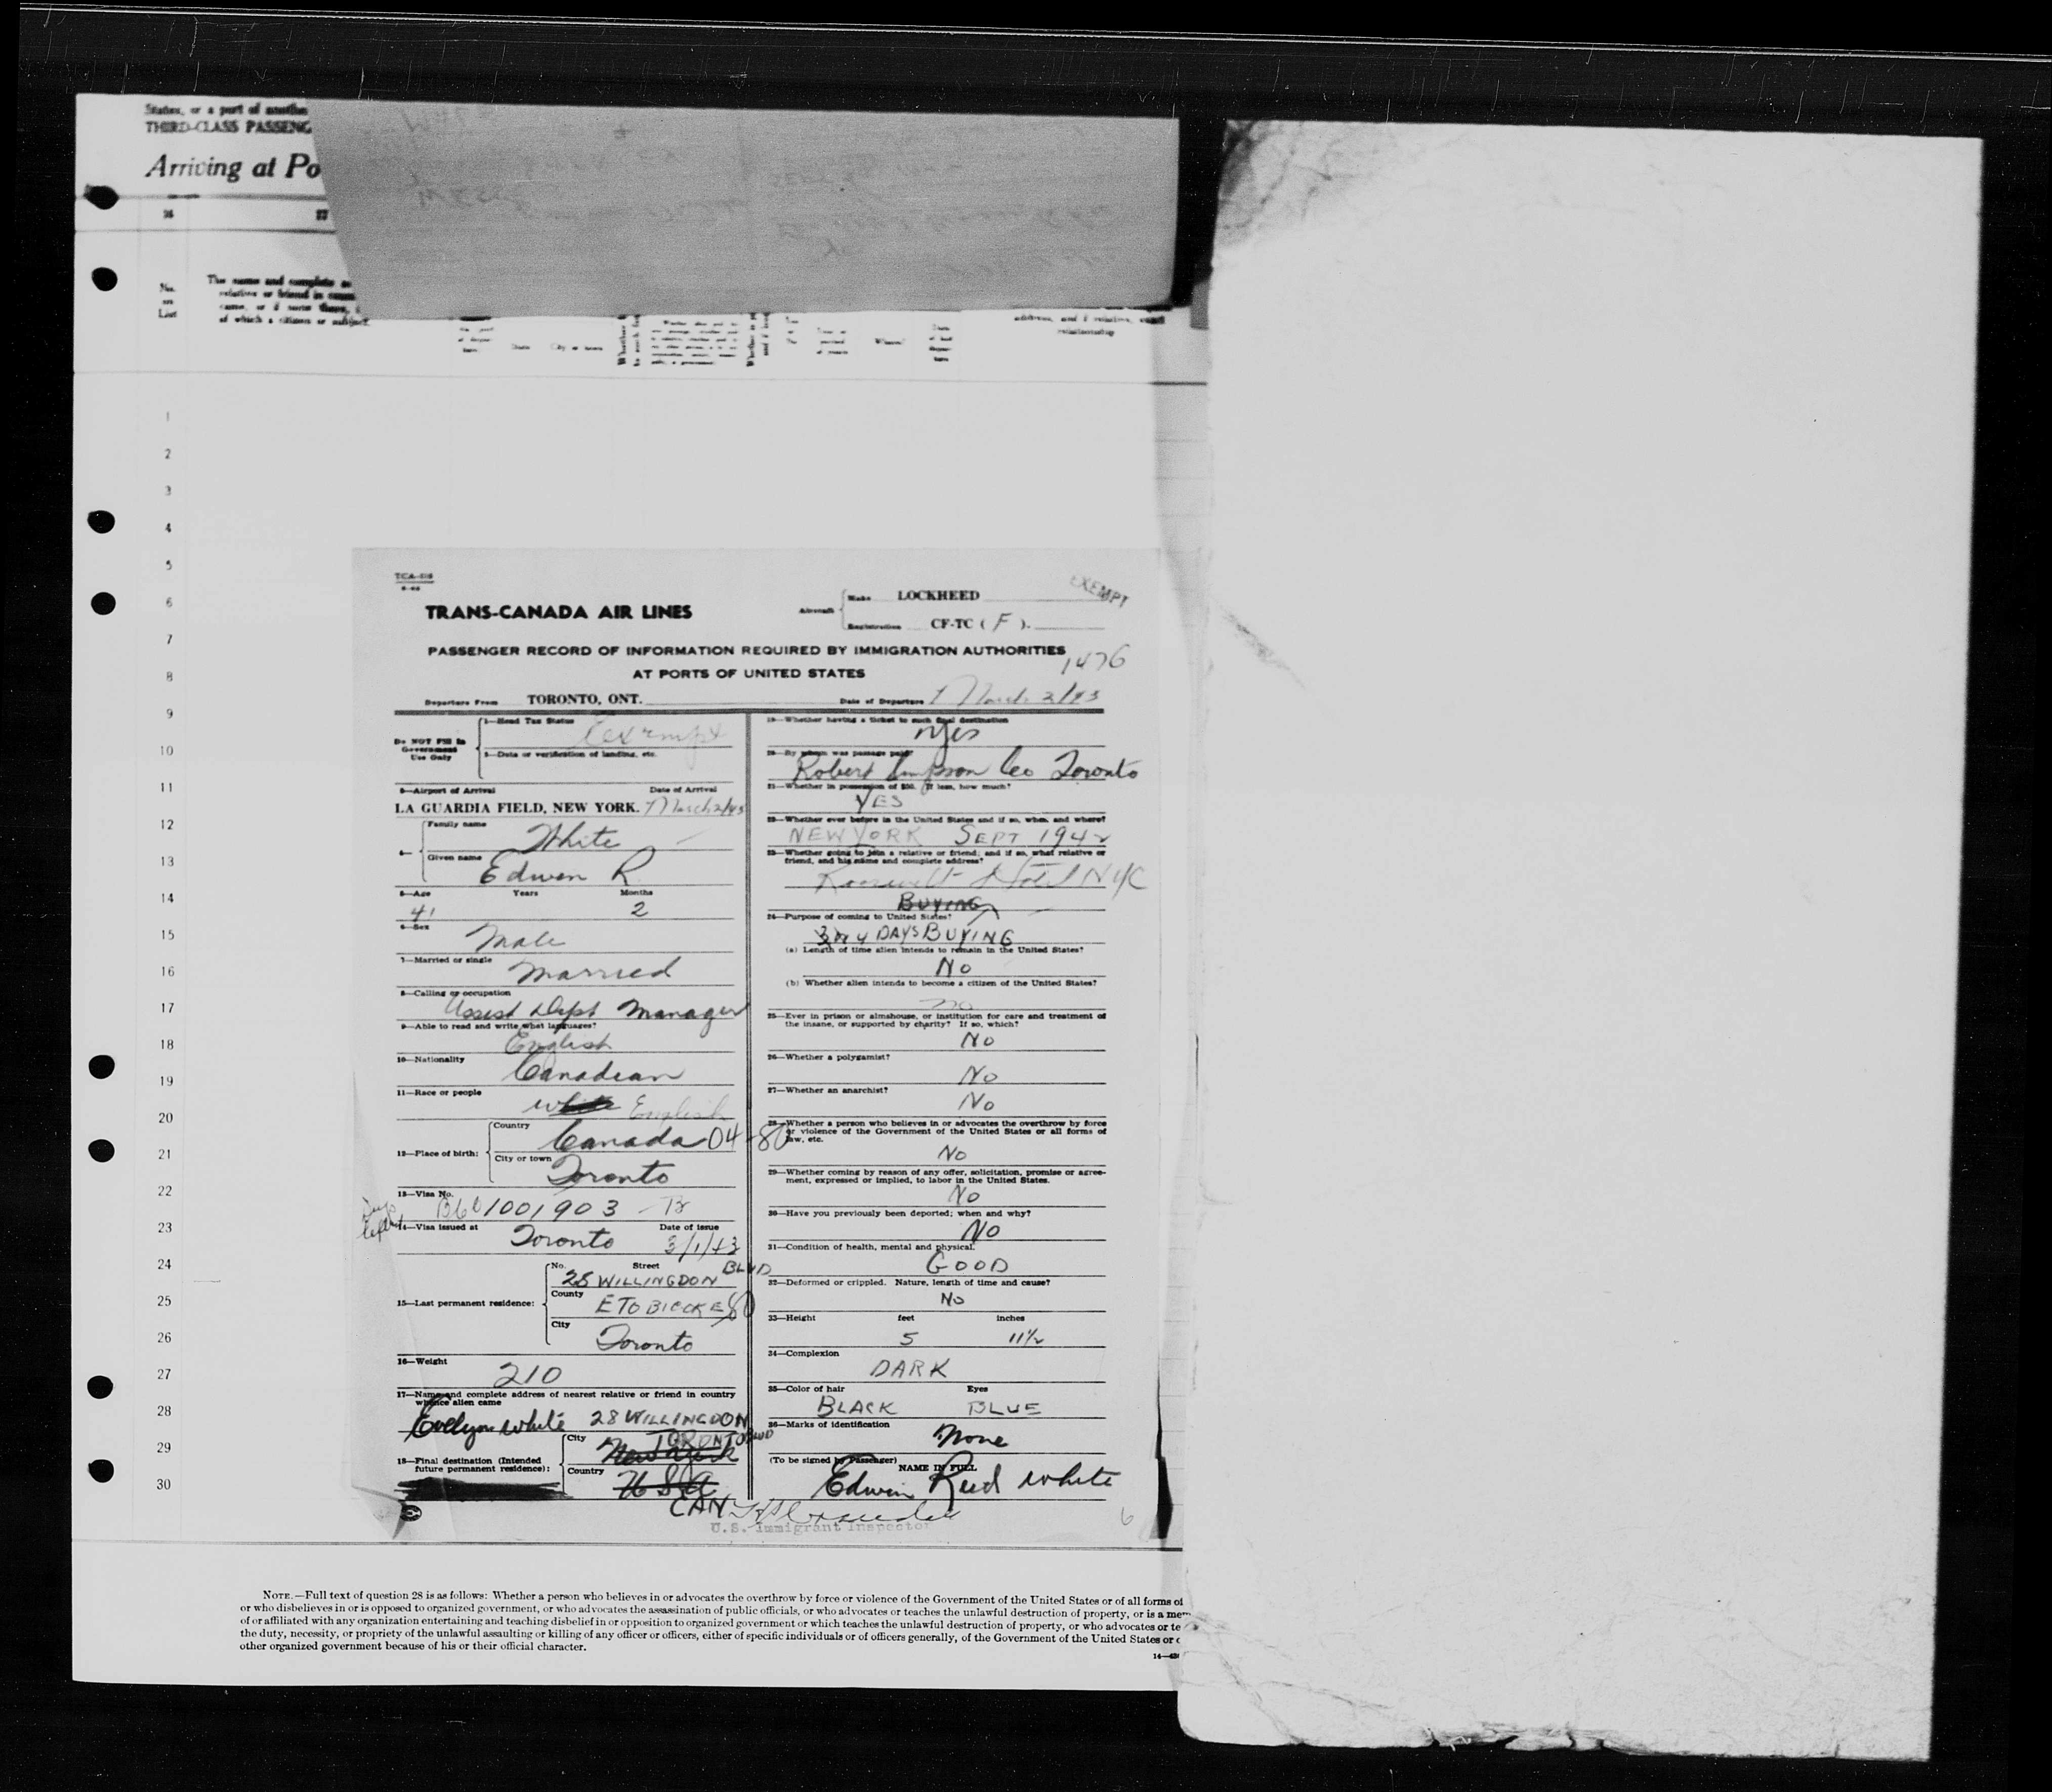 States, or a part of another
THIRD-CLASS PASSENG
Arriving at Po
No.
on
List
The name and complete
relative or friend in
of which a citizen or subject
address, and if relative, exact
relationship
1
2
3
4
5
6
7
8
9
10
11
12
13
14
15
16
17
18
19
20
21
22
23
24
25
26
27
28
29
30
TRANS-CANADA AIR LINES
Aircraft
Make LOCKHEED
Registration CF-TC ( F ).
EXEMPT
PASSENGER RECORD OF INFORMATION REQUIRED BY IMMIGRATION AUTHORITIES
AT PORTS OF UNITED STATES
1476
Departure From TORONTO, ONT.
Date of Departure March 2/43
Do NOT Fill in
Government
Use Only
1—Head Tax Status
Exempt
2—Data or verification of landing, etc.
3—Airport of Arrival Date of Arrival
LA GUARDIA FIELD, NEW YORK. March 2/43
4—
Family name
White
Given name
Edwin R.
5—Age Years Months
41 2
6—Sex
Male
7—Married or single
Married
8—Calling or occupation
Assist Dept Manager
9—Able to read and write what languages?
English
10—Nationality
Canadian
11—Race or people
white English
12—Place of birth:
Country
Canada 04-80
City or town
Toronto
13—Visa No.
1001903
14—Visa issued at Date of issue
Toronto 3/1/43
15—Last permanent residence:
No. Street
28 WILLINGDON BLVD
County
ETOBICOKE
City
Toronto
16—Weight
210
17—Name and complete address of nearest relative or friend in country
whence alien came
Evelyn White 28 WILLINGDON
BLVD
18—Final destination (Intended
future permanent residence):
City
TORONTO
New York
Country
U S A
CAN
19—Whether having a ticket to such final destination
yes
20—By whom was passage paid?
Robert Simpson Co Toronto
21—Whether in possession of $50. If less, how much?
YES
22—Whether ever before in the United States and if so, when and where?
NEW YORK SEPT 1942
23—Whether going to join a relative or friend; and if so, what relative or
friend, and his name and complete address?
Roosevelt Hotel NYC
BUYING
24—Purpose of coming to United States?
DAYS BUYING
(a) Length of time alien intends to remain in the United States?
No
(b) Whether alien intends to become a citizen of the United States?
no
25—Ever in prison or almshouse, or institution for care and treatment of
the insane, or supported by charity? If so, which?
No
26—Whether a polygamist?
No
27—Whether an anarchist?
No
28—Whether a person who believes in or advocates the overthrow by force
or violence of the Government of the United States or all forms of
law, etc.
No
29—Whether coming by reason of any offer, solicitation, promise or agree-
ment, expressed or implied, to labor in the United States.
No
30—Have you previously been deported; when and why?
No
31—Condition of health, mental and physical.
GOOD
32—Deformed or crippled. Nature, length of time and cause?
No
33—Height feet inches
5 11½
34—Complexion
DARK
35—Color of hair Eyes
BLACK BLUE
36—Marks of identification
None
(To be signed by Passenger)
NAME IN FULL
Edwin Reed White
U.S. Immigrant Inspector
6
NOTE.—Full text of question 28 is as follows: Whether a person who believes in or advocates the overthrow by force or violence of the Government of the United States or of all forms of
or who disbelieves in or is opposed to organized government, or who advocates the assassination of public officials, or who advocates or teaches the unlawful destruction of property, or is a mem
of or affiliated with any organization entertaining and teaching disbelief in or opposition to organized government or which teaches the unlawful destruction of property, or who advocates or te
the duty, necessity, or propriety of the unlawful assaulting or killing of any officer or officers, either of specific individuals or of officers generally, of the Government of the United States or
other organized government because of his or their official character.